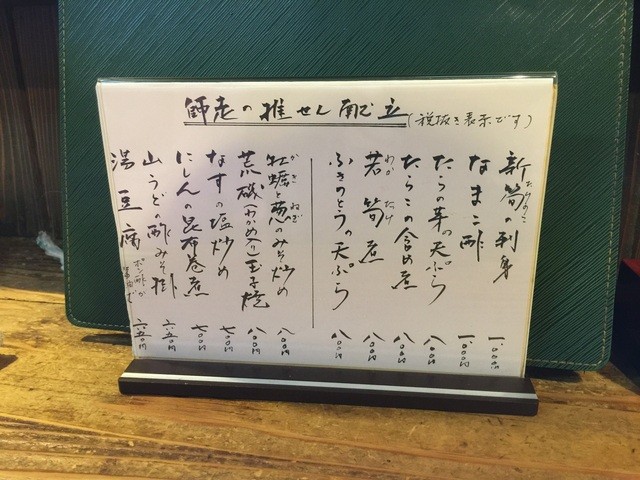 師走の推せん献立(税抜き表示です)
新筍の刺身 一、〇〇〇円
たけのこ
なまこ酢 一、〇〇〇円
たらの芽の天ぷら 八〇〇円
たらこの含め煮 八〇〇円
若筍煮 八〇〇円
わか たけ
ふきのとうの天ぷら 八〇〇円
牡蠣と葱のみそ炒め 八〇〇円
かき ねぎ
荒磯(わかめ入り)玉子焼 八〇〇円
なすの塩炒め 七〇〇円
にしんの昆布巻煮 七〇〇円
山うどの酢みそ掛 六五〇円
湯豆腐 ポン酢か 六五〇円